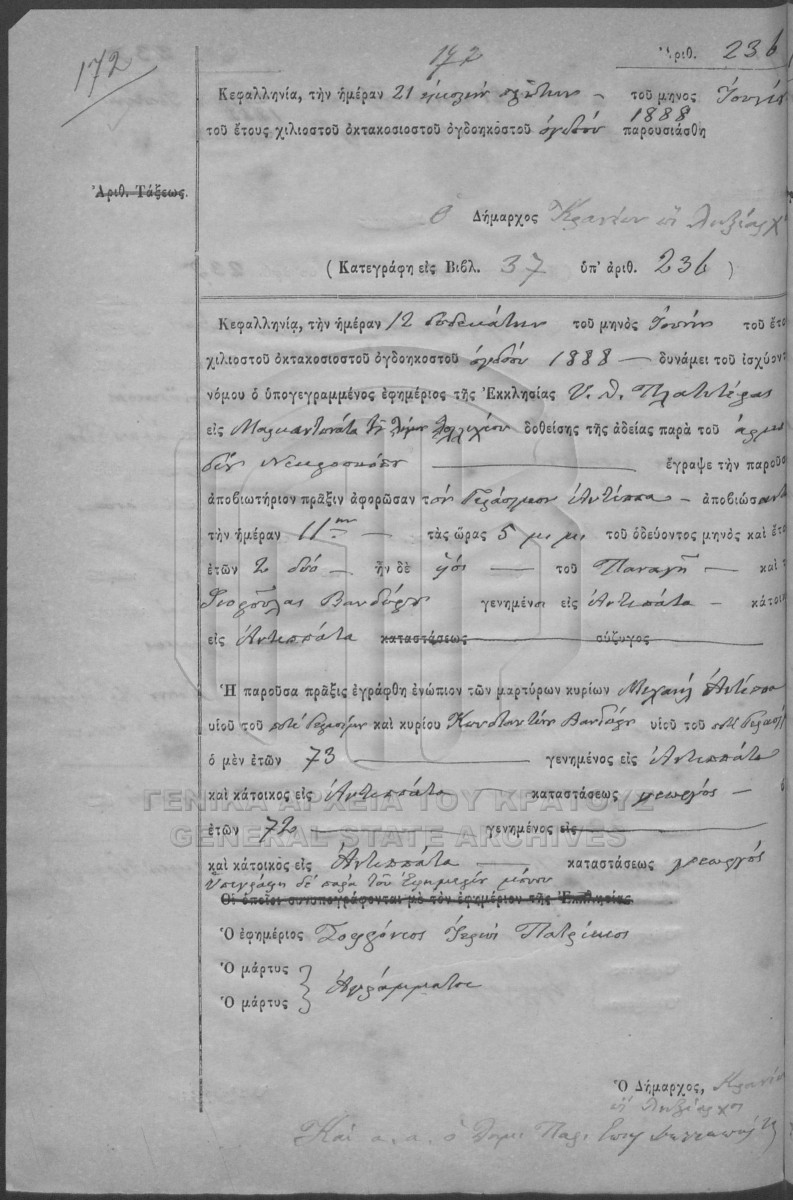 172
172
Ἀριθ. 236
Κεφαλληνία, τὴν ἡμέραν 21 τοῦ μηνος
1888
τοῦ ἔτους χιλιοστοῦ ὀκτακοσιοστοῦ ὀγδοηκοστοῦ ὀγδόου παρουσιάσθη
Ἀριθ. Τάξεως.
Ὁ Δήμαρχος Κρανίων
(Κατεγράφη εἰς Βιβλ. 37 ὑπ' ἀριθ. 236)
Κεφαλληνία, τὴν ἡμέραν 12 δωδεκάτην τοῦ μηνὸς τοῦ ἔτο
χιλιοστοῦ ὀκτακοσιοστοῦ ὀγδοηκοστοῦ ὀγδόου 1888 — δυνάμει τοῦ ἰσχύοντ
νόμου ὁ ὑπογεγραμμένος ἐφημέριος τῆς Ἐκκλησίας Υ. Θ. Πλατυτέρας
εἰς δοθείσης τῆς ἀδείας παρὰ τοῦ
ἔγραψε τὴν παροῦσα
ἀποβιωτήριον πρᾶξιν ἀφορῶσαν τὸν Γεράσιμον Ἀντίππα — ἀποβιώσαντα
τὴν ἡμέραν 11ην — τὰς ὥρας 5 μ. μ. τοῦ ὁδεύοντος μηνὸς καὶ ἔτο
ἐτῶν 2 δύο — ἦν δὲ υἱὸς — τοῦ Παναγῆ — καὶ τ
Βανδώρου γενημένος εἰς Ἀντιπάτα — κάτοικ
εἰς Ἀντιππάτα καταστάσεως σύζυγος
Ἡ παροῦσα πρᾶξις ἐγράφθη ἐνώπιον τῶν μαρτύρων κυρίων Μιχαὴλ Ἀντίππα
υἱοῦ τοῦ ποτὲ Γερασίμου καὶ κυρίου Κωνσταντίνου Βανδώρου υἱοῦ τοῦ ποτὲ
ὁ μὲν ἐτῶν 73 — γενημένος εἰς Ἀντιππάτα
καὶ κάτοικος εἰς Ἀντιππάτα — καταστάσεως γεωργός — ὁ
ΓΕΝΙΚΑ ΑΡΧΕΙΑ ΤΟΥ ΚΡΑΤΟΥΣ
ἐτῶν 72 — γενημένος εἰς
GENERAL STATE ARCHIVES
καὶ κάτοικος εἰς Ἀντιππάτα — καταστάσεως γεωργός
Ὑπεγράφη δὲ παρὰ τοῦ Ἐφημερίου μόνου
Οἱ ὁποῖοι συνυπογράφονται μὲ τὸν ἐφημέριον τῆς Ἐκκλησίας.
Ὁ ἐφημέριος Σωφρόνιος Ἱερεὺς Πατρίκιος
Ὁ μάρτυς
Ἀγράμματοι
Ὁ μάρτυς
Ὁ Δήμαρχος,